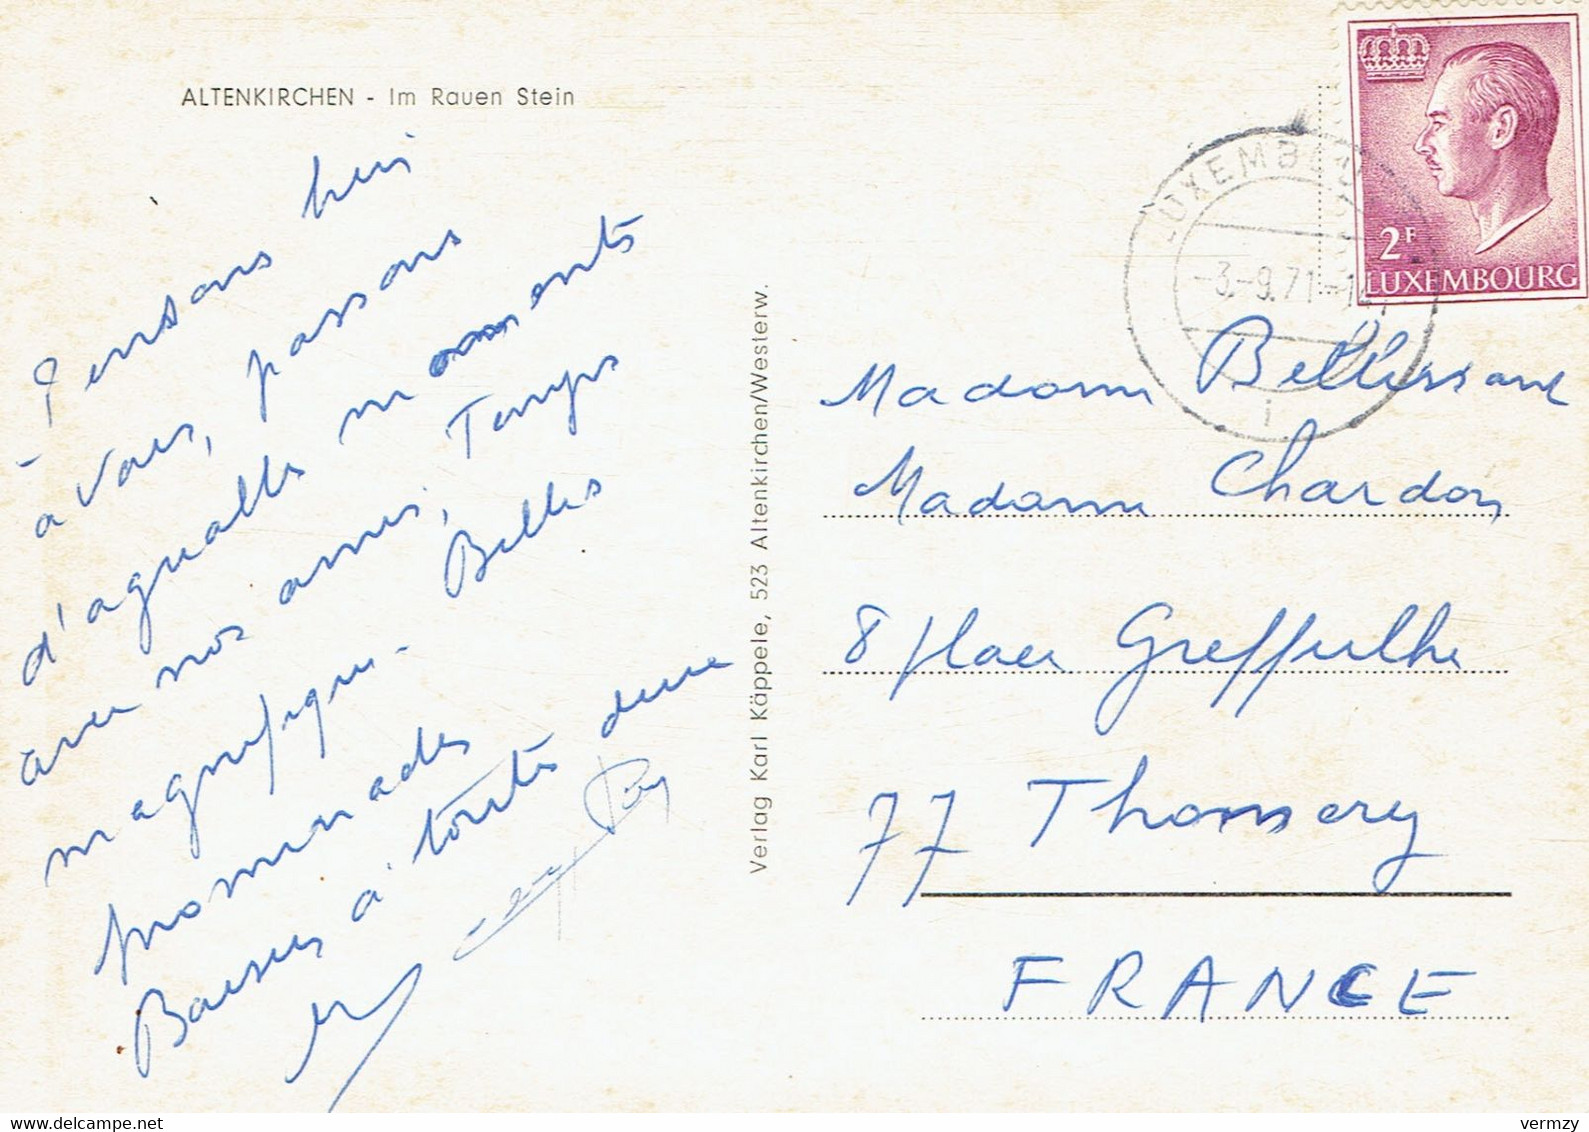 ALTENKIRCHEN - Im Rauen Stein
Pensons bien
à vous, passons
d'agréables moments
avec nos amis, Temps
magnifique. Belles
promenades
Baisers à toutes deux
Verlag Karl Käppele, 523 Altenkirchen/Westerw.
LUXEMBOURG
-3.-9.71-
2F
LUXEMBOURG
Madame
Madame Chardon
8 place Greffulhe
77 Thomery
FRANCE
vermzy